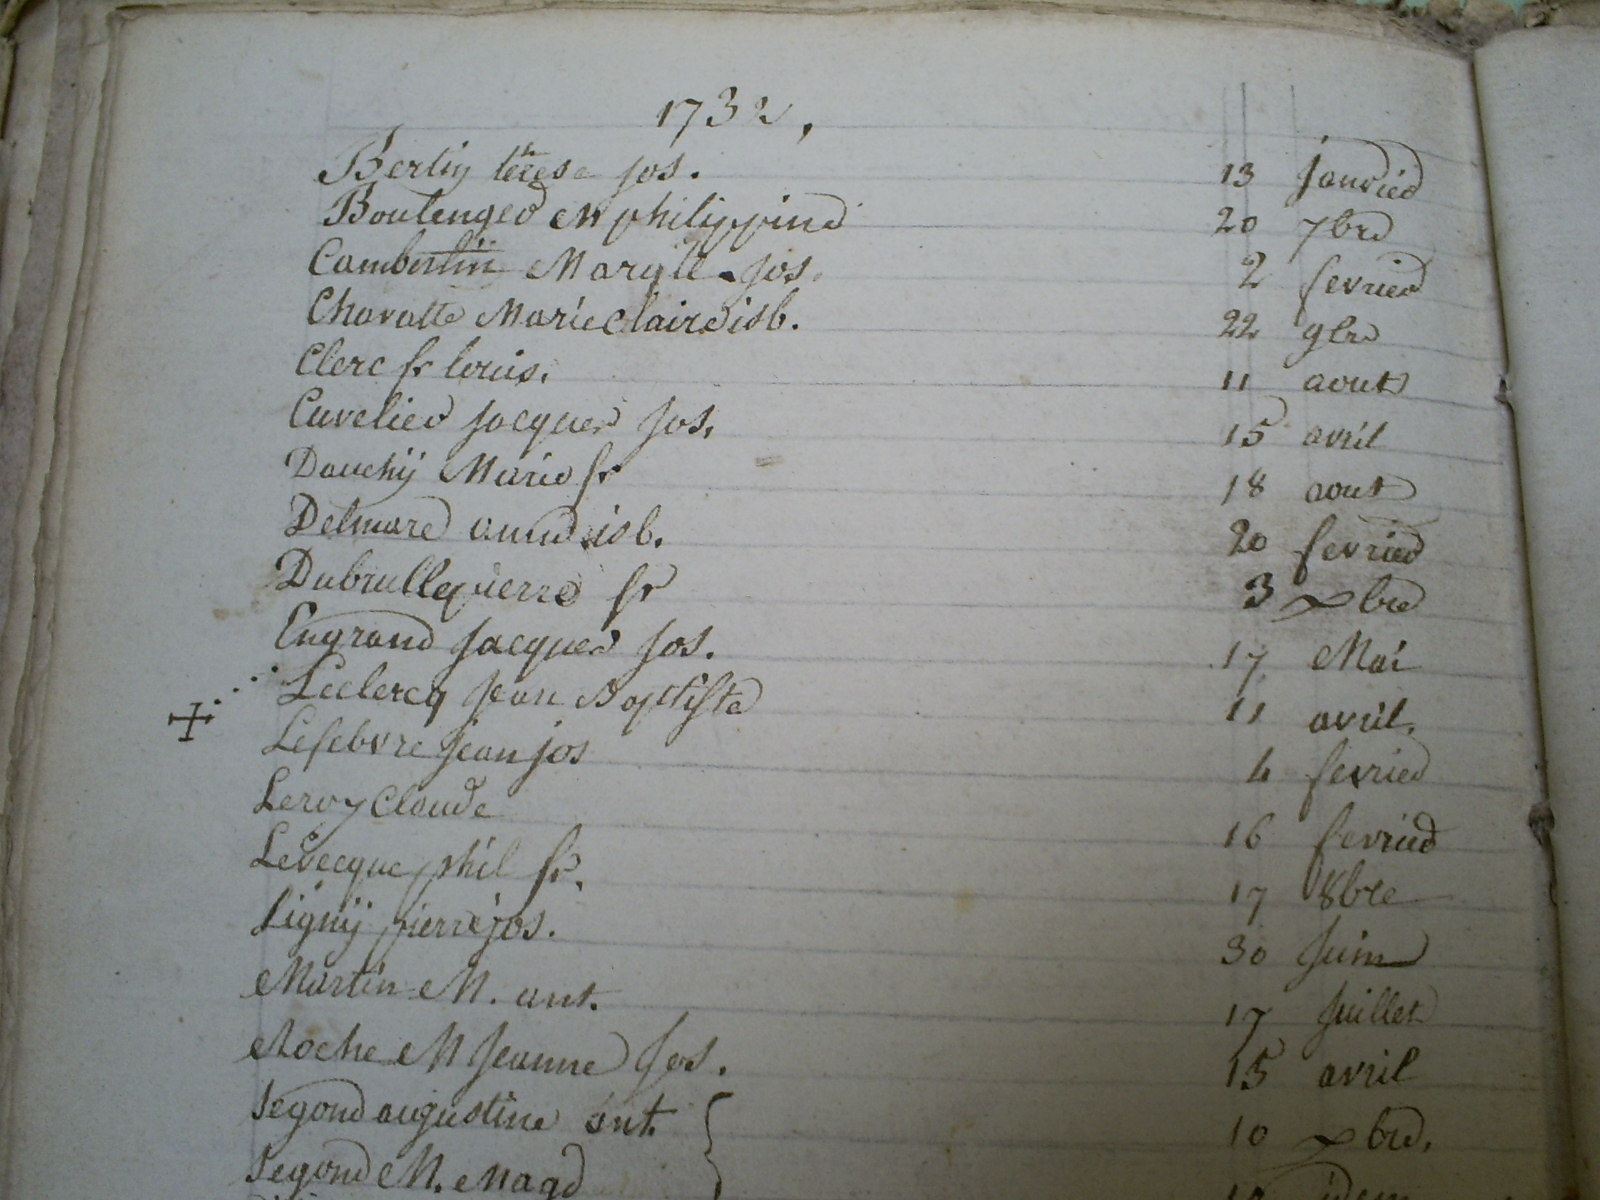 1732,
Bertin térese jos. 13 janvier
Boulenger M philippine 20 7bre
Cambertin Margte jos. 2 fevrier
Chavatte Marie claire isb. 22 9bre
Clerc fr louis. 11 aout
Cuvelier jacques jos. 15 avril
Dauchÿ Marie fr 18 aout
Delmare anne isb. 20 fevrier
Dubrulle pierre fr 3 xbre
Engrand jacques jos. 17 Mai
Leclercq jean Baptiste 11 avril.
Lefebvre jean jos 4 fevrier
Leroy Claude 16 fevrier
Levecque phil fr. 17 8bre
Lignÿ pierre jos. 30 juin
Martin M. ant. 17 juillet
Roche M jeanne jos. 15 avril
Segond augustine ant. 10 xbre.
Segond M. Magd idem